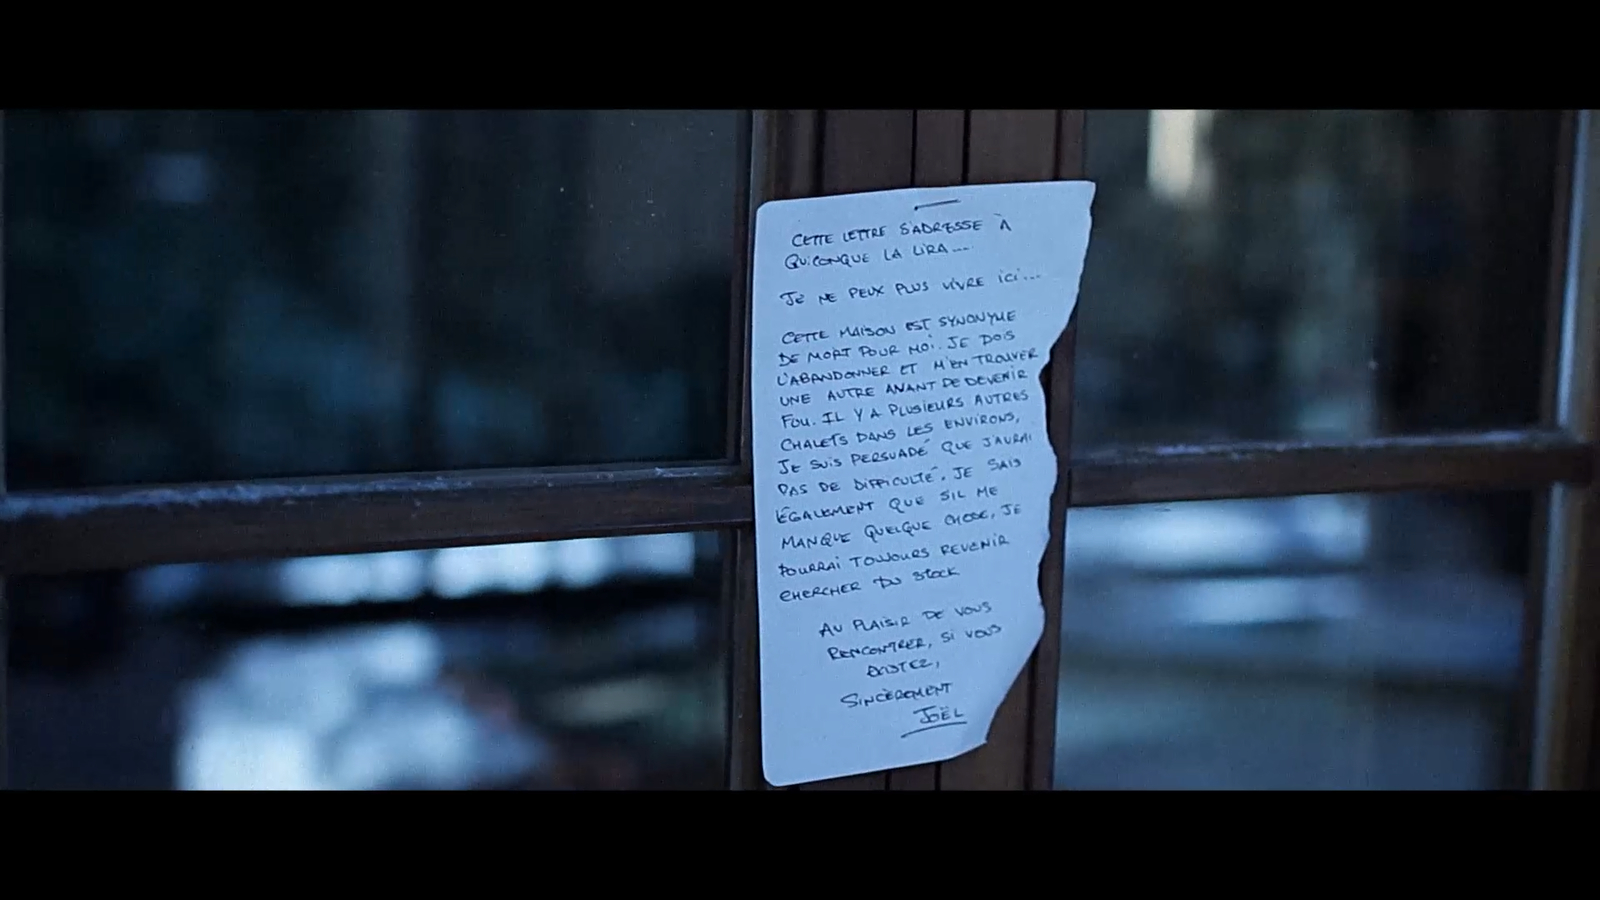 CETTE LETTRE S'ADRESSE À
QUICONQUE LA LIRA....
JE NE PEUX PLUS VIVRE ICI...
CETTE MAISON EST SYNONYME
DE MORT POUR MOI. JE DOIS
L'ABANDONNER ET M'EN TROUVER
UNE AUTRE AVANT DE DEVENIR
FOU. IL Y A PLUSIEURS AUTRES
CHALETS DANS LES ENVIRONS,
JE SUIS PERSUADÉ QUE J'AURAI
PAS DE DIFFICULTÉ. JE SAIS
ÉGALEMENT QUE S'IL ME
MANQUE QUELQUE CHOSE, JE
POURRAI TOUJOURS REVENIR
CHERCHER DU STOCK
AU PLAISIR DE VOUS
RENCONTRER, SI VOUS
EXISTEZ,
SINCÈREMENT
JOËL